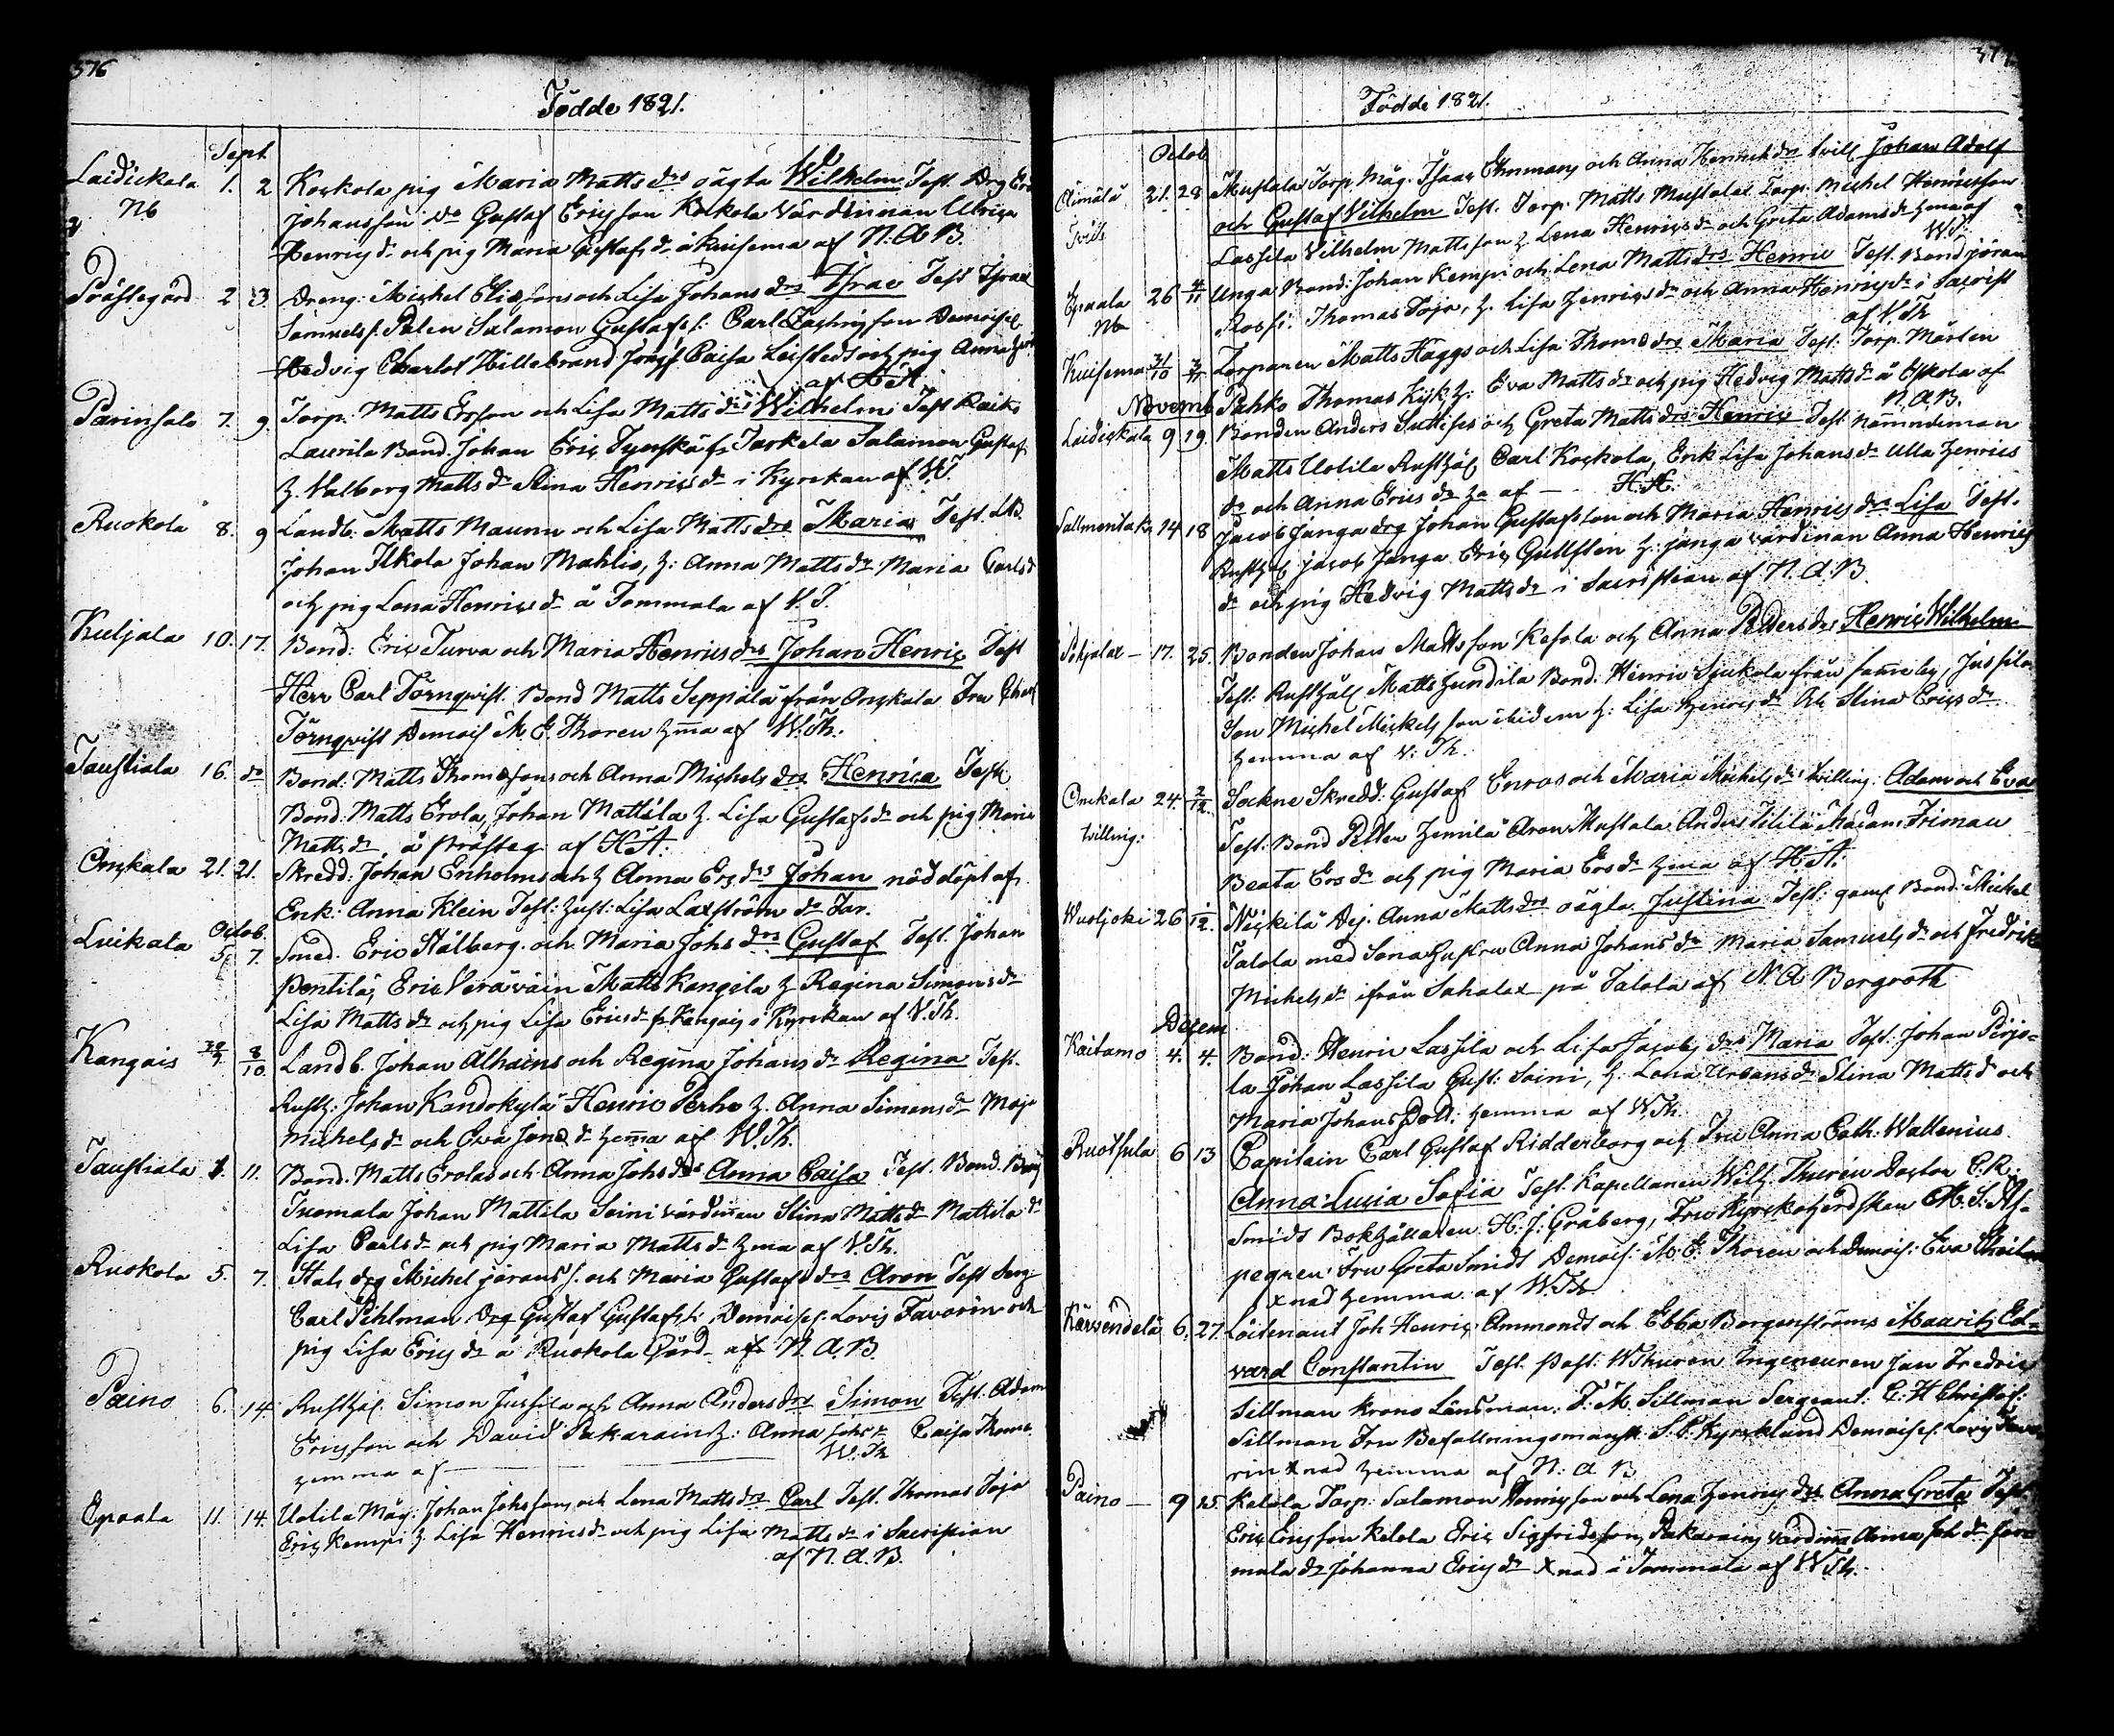 376
Födde 1821.
Sept
Laidickala 1. 2 Koskola pig Maria Matts drs oägta Wilhelm Test. Drg
Nb Johansson do Gustaf Ericsson Koskola värdinnan Ulrica
Henrics dr och pig Maria Gustafs dr å Kuisema af N. A. B.
Prästegård 2 3 Dreng: Michel Eliæsons och Lisa Johans drs Israe Test Israel
Samuels s. Palen Salamon Gustafs s. Carl Demoisel
Hedvig Charlot Hillebrand Caisa och pig Anna
af H A.
Parinsalo 7. 9 Torp: Matts Ersson och Lisa Matts drs Wilhelm Test
Laurila Bond. Johan Eric Jackela Salamon Gustaf
h. Valborg Matts dr Stina Henrics dr i Kyrckan af V. T.
Ruokola 8. 9 Landb: Matts Maunu och Lisa Matts drs Maria Test. LB.
Johan Ilkola Johan Mahlio, h: Anna Matts dr Maria Carls d
och pig Lena Henrics dr å Tommala af V. T.
Kuljala 10. 17. Bond: Eric Turva och Maria Henrics drs Johan Henric Test
Herr Carl Törnqvist. Bond Matts Seppälä från Onckala Fru
Törnqvist Demois M. E. Thoren hma af W. Th.
Taustiala 16. do Bond: Matts Thomæsons och Anna Michels drs Henrica Test
Bond: Matts Erola, Johan Mattila h. Lisa Gustafs dr och pig Maria
Matts dr å prästeg. af H A.
Onckala 21. 21. Skredd: Johan Enholms och h Anna Ers drs Johan nöddöpt af
Enk: Anna Klein Test: hust: Lisa Laxström dr Far.
Octob.
Luikala 5 7. Smed. Eric Stålberg. och Maria Johs drs Gustaf Test. Johan
Pentilä, Eric Veräväin Matts Kangila h Regina Simons dr
Lisa Matts dr och pig Lisa Erics dr fr Kangais i Kyrckan af V. Th.
Kangais 30/9 8/10 Landb. Johan Alhains och Regina Johans dr Regina Test.
Rusth: Johan Kandokylä Henric Perho h. Anna Simons dr Maja
Michels dr och Eva Jons dr hemma af W. Th.
Taustiala 1. 11. Bond. Matts Erolas och Anna Johs drs Anna Caisa Test. Bond.
Tuomala Johan Mattila Soini värdinnan Stina Matts dr Mattila dr
Lisa Carls dr och pig Maria Matts dr hma af V. Th.
Ruokola 5. 7. Stals drg Michel Jörans s. och Maria Gustafs drs Aron Test Serg
Carl Pihlman Drg Gustaf Gustafs s. Demoisel. Lovis Favorin och
pig Lisa Erics dr å Ruokola Gård af N. A. B.
Paino 6. 14 Rusthål. Simon Jussila och Anna Anders drs Simon Test. Adam
Ericsson och David Pakarain h: Anna Johs dr Caisa Thomæ
hemma af W. Th
Epaala 11. 14. Uotila Måg: Johan Johssons och Lena Matts drs Carl Test. Thomas Jojo
Eric Kempi h. Lisa Henrics dr och pig Lisa Matts dr i Sacristian
af N. A. B.
377
Födde 1821.
Octob
Äimälä 21. 28 Mustala Torp. Måg. Isaac Ehnmans och Anna Henrich drs tvill Johan Adolf
Tvill och Gustaf Vilhelm Test. Torp. Matts Mustala Torp. Michel Henricsson
Lassila Vilhelm Mattsson h. Lena Henrics dr och Greta Adams dr hma af
W. T.
Epaala 26 4/11 Unga Bond: Johan Kempi och Lena Matts drs Henric Test. Bond Jöran
Nb Rossi. Thomas Jojo, h. Lisa Henrics dr och Anna Henrics dr i Sacrist
af V. Th
Kuisema 31/10 3/11 Torparen Matts Haggs och Lisa Thomæ drs Maria Test: Torp. Mårten
Novemb. Pahko Thomas h: Eva Matts dr och pig Hedvig Matts dr å af
N. A. B.
Laidickala 9 19. Bonden Anders och Greta Matts drs Henric Test. Nämndeman
Matts Uotila Rusthål Carl Koskola, Enk Lisa Johans dr Ulla Henrics
dr och Anna Erics dr ha af — H. A.
Salmentaka 14 18 Jacob Janga drg Johan Gustafsson och Maria Henrics drs Lisa Test.
Rusthål Jacob Janga Eric Gullsten h: Janga värdinnan Anna Henrics
dr och pig Hedvig Matts dr i Sacristian af N. A. B.
Pohjalax — 17. 25. Bonden Johan Mattsson Kesola och Anna Petters drs Henric Wilhelm
Test. Rusthål Matts Bond: Henric från samma by, Jussila
Son Michel Michelsson ibidem h: Lisa Henrics dr och Stina Erics dr
hemma af V: Th.
Onckala 24. 2/12. Sockne Skredd: Gustaf Enros och Maria Michels drs tvilling: Adam och Eva
tvilling: Test: Bond Petter Hemilä Aron Mustala Anders Tilila Madam Friman
Beata Ers dr och pig Maria Ers dr hma af H. A.
Wuoljoki 26 1/12. Neckilä Pig. Anna Matts drs oägta Justina Test: gaml Bond: Michel
Talola med Sona hustru Anna Johans dr Maria Samuels dr och Fredrika
Michels dr ifrån Sahalax på Talola af N. A Bergroth
Decem
Kaitamo 4. 4. Bond: Henric Lassila och Lisa Jacobs drs Maria Test. Johan Pirjo-
la Johan Lassila Gust: Soini, h. Lena Urbans dr Stina Matts d och
Maria Johans Dott. hemma af W. Th.
Ruotsula 6 13 Capitain Carl Gustaf Ridderborg och Fru Anna Cath: Wallenius
Anna Lucia Sofia Test. Kapellanen Wilh. Thuren Doctor C. R.
Smidt Bokhållaren H. J. Gråberg, Fru Kyrckoherdskan M. S. As-
pegren Fru Greta Smidt Demois: M. E. Thoren och Demois: Eva
xnad hemma af W. Th
Kärsendelä 6. 27. Löitenant Joh Henric Ammondt och Ebba Borgenströms Mauritz Ed-
vard Constantin Test. Past. W Thuren Ingenieuren Jan Fredric
Sillman Krono Länsman. F. M. Sillman Sergeant: C. H Christof:
Sillman Fru Befallningsmansk. S. C. Kyrcklund Demoisel. Lovis Favo-
rin xnad hemma af N: A B
Paino — 9 25. Kelola Torp: Salamon Henricsson och Lena Henrics drs Anna Greta Test
Eric Ericsson Kelola Eric Sigfridsson, Pakarain värdinna Anna Joh dr
mula dr Johanna Erics dr xnad å Tommola af W Th.